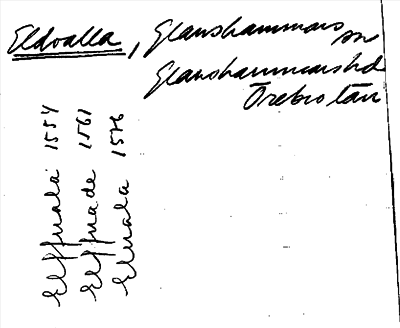 Eldvalla, Glanshammars sn
Glanshammars hd
Örebro län
Elffuala 1554
Elffuade 1561
Eluala 1576